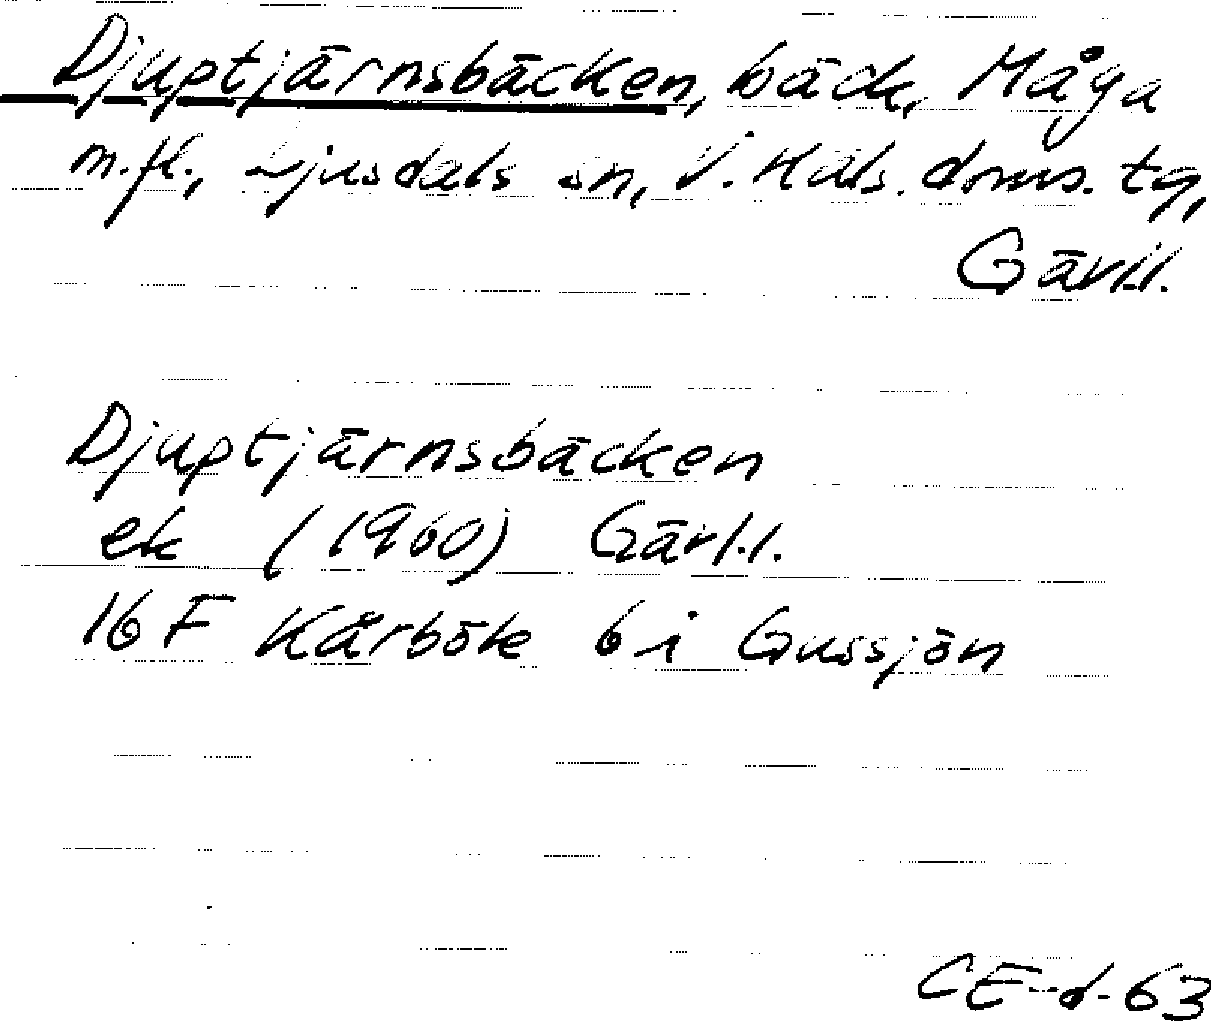 Djuptjärnsbäcken, bäck, Måga
m.fl., Ljusdals sn, V. Häls. doms. tg,
Gävl.l.
Djuptjärnsbäcken
ek (1960) Gävl.l.
16 F Kårböle 6 i Gussjön
CE-d-63